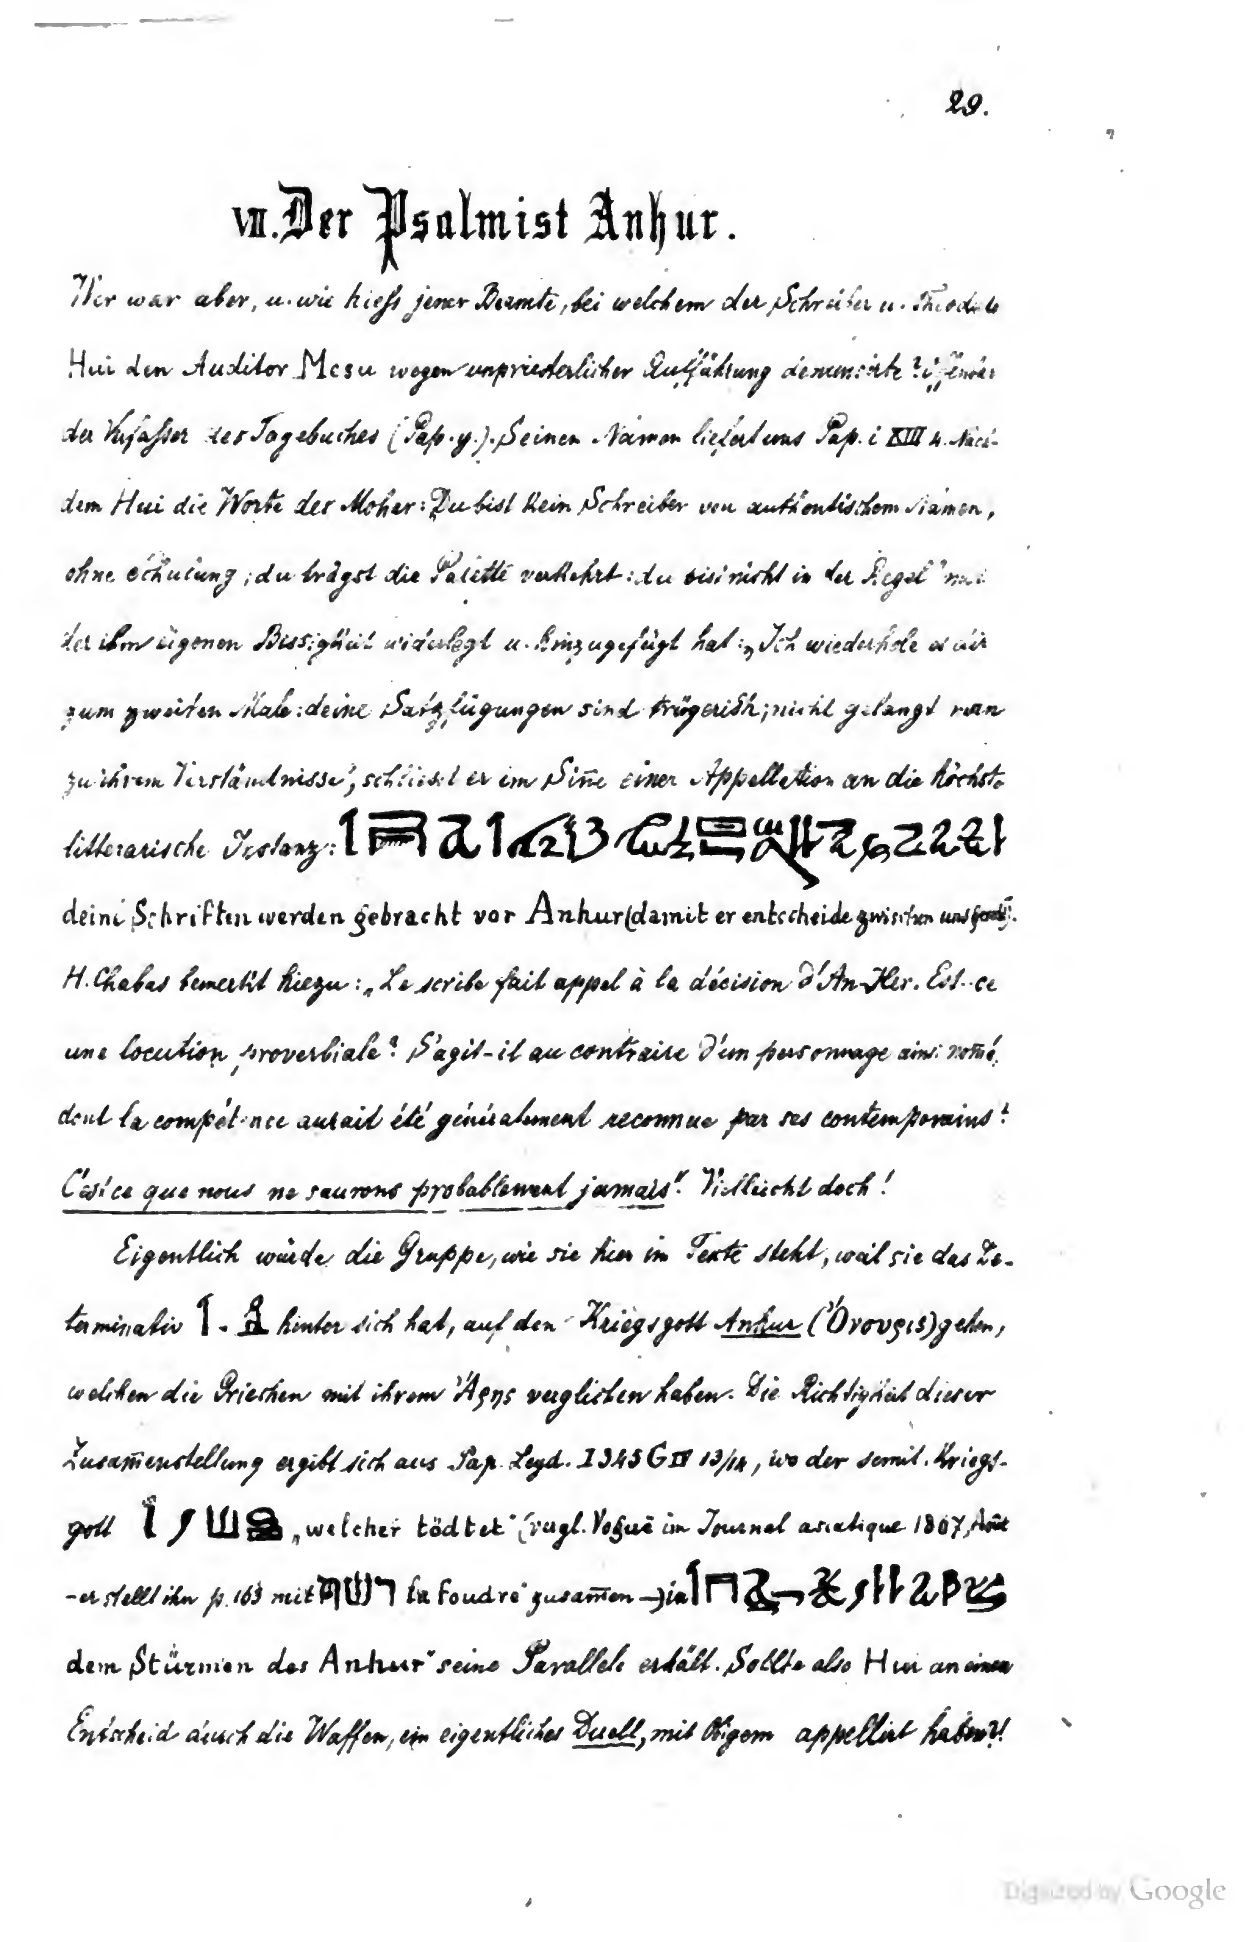 29.
VII. Der Psalmist Anhur.
Wer war aber, u. wie hiess jener Beamte, bei welchem der Schreiber u. Theodule
Hui den Auditor Mesu wegen unpriesterlicher Aufführung denuncirte? Offenbar
der Verfasser des Tagebuches (Pap. y.). Seinen Namen liefert uns Pap. i XIII 4. Nach-
dem Hui die Worte des Moher: Du bist kein Schreiber von authentischem Namen,
ohne Schulung; du trägst die Palette verkehrt: du bist nicht in der Regel" mit
der ihm eigenen Bissigkeit widerlegt u. hinzugefügt hat: „Ich wiederhole es dir
zum zweiten Male: deine Satzfügungen sind trügerisch; nicht gelangt man
zu ihrem Verständnisse", schliesst er im Sin̄e einer Appellation an die höchste
litterarische Instanz:
deine Schriften werden gebracht vor Anhur (damit er entscheide zwischen uns
H. Chabas bemerkt hiezu: „Le scribe fait appel à la décision d'An-Her. Est-ce
une locution proverbiale? S'agit-il au contraire d'un personnage ainsi nom̄é,
dont la compétence aurait été généralement reconnue par ses contemporains?
C'est ce que nous ne saurons probablement jamais". Vielleicht doch!
Eigentlich würde die Gruppe, wie sie hier im Texte steht, weil sie das De-
terminativ hinter sich hat, auf den Kriegsgott Anhur (Ὀνουρις) gehen,
welchen die Griechen mit ihrem Ἄρης verglichen haben. Die Richtigkeit dieser
Zusam̄enstellung ergibt sich aus Pap. Leyd. I 343 G IV 13/14, wo der semit. Kriegs-
gott „welcher tödtet" (vergl. Vogüé im Journal asiatique 1867, Août
- er stellt ihn p. 163 mit la foudre" zusam̄en -) in
dem Stürmen des Anhur" seine Parallele erhält. Sollte also Hui an einen
Entscheid durch die Waffen, ein eigentliches Duell, mit Obigem appellirt haben?!
Digitized by Google